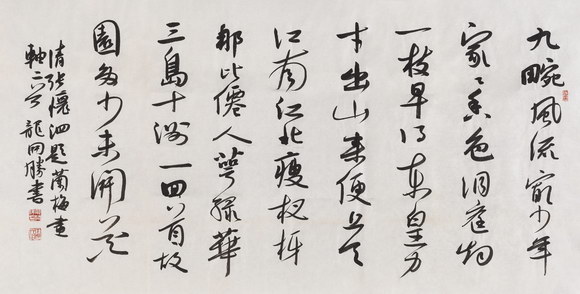 九畹風流最少年
色洞庭
一枝早得東皇力
才出山來便
江南江北瘦槎枒
那比僊人萼綠華
三島十洲一回首故
園多少未開花
清張懷泗題蘭梅畫
軸二首 龍開勝書